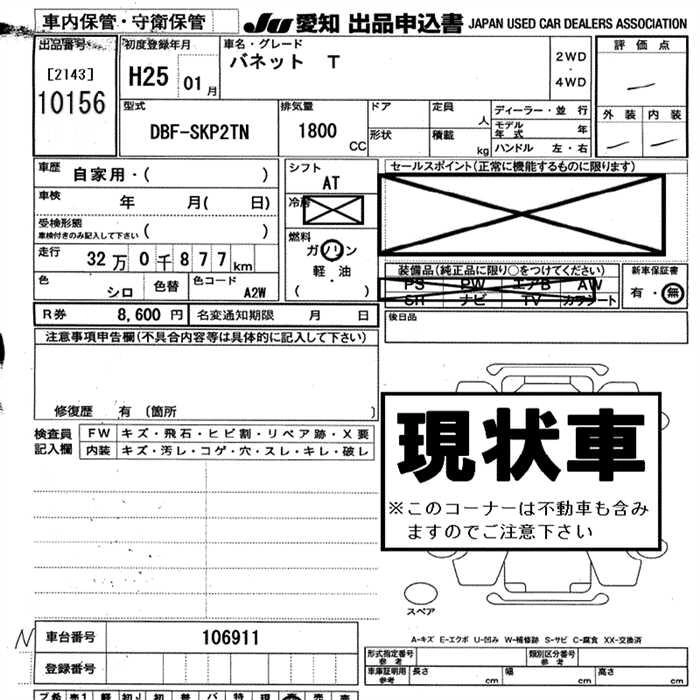 車内保管・守衛保管
JU 愛知 出品申込書 JAPAN USED CAR DEALERS ASSOCIATION
出品番号
[2143]
10156
初度登録年月
H25 01 月
車名・グレード
バネット T
2WD
・
4WD
評価点
外装 内装
型式
DBF-SKP2TN
排気量
1800 CC
ドア
形状
定員 人
積載 kg
ディーラー・並行
モデル年式 年
ハンドル 左・右
車歴
自家用・( )
車検
年 月( 日)
受検形態
車検付きのみ記入して下さい ( )
走行
32万0千877km
色
シロ
色替
色コード
A2W
シフト
AT
冷房
燃料
ガソリン
軽・油
( )
セールスポイント(正常に機能するものに限ります)
装備品(純正品に限り○をつけてください)
PS PW エアB AW
SR ナビ TV カワシート
新車保証書
有・無
R券 8,600 円
名変通知期限 月 日
後日品
注意事項申告欄(不具合内容等は具体的に記入して下さい)
修復歴 有 〔箇所 〕
検査員
記入欄
FW キズ・飛石・ヒビ割・リペア跡・X要
内装 キズ・汚レ・コゲ・穴・スレ・キレ・破レ
現状車
※このコーナーは不動車も含み
ますのでご注意下さい
スペア
A-キズ E-エクボ U-凹み W-補修跡 S-サビ C-腐食 XX-交換済
N
車台番号 106911
登録番号
形式指定番号
参考
類別区分番号
参考
車庫証明用
参考
長さ cm 幅 cm 高さ cm